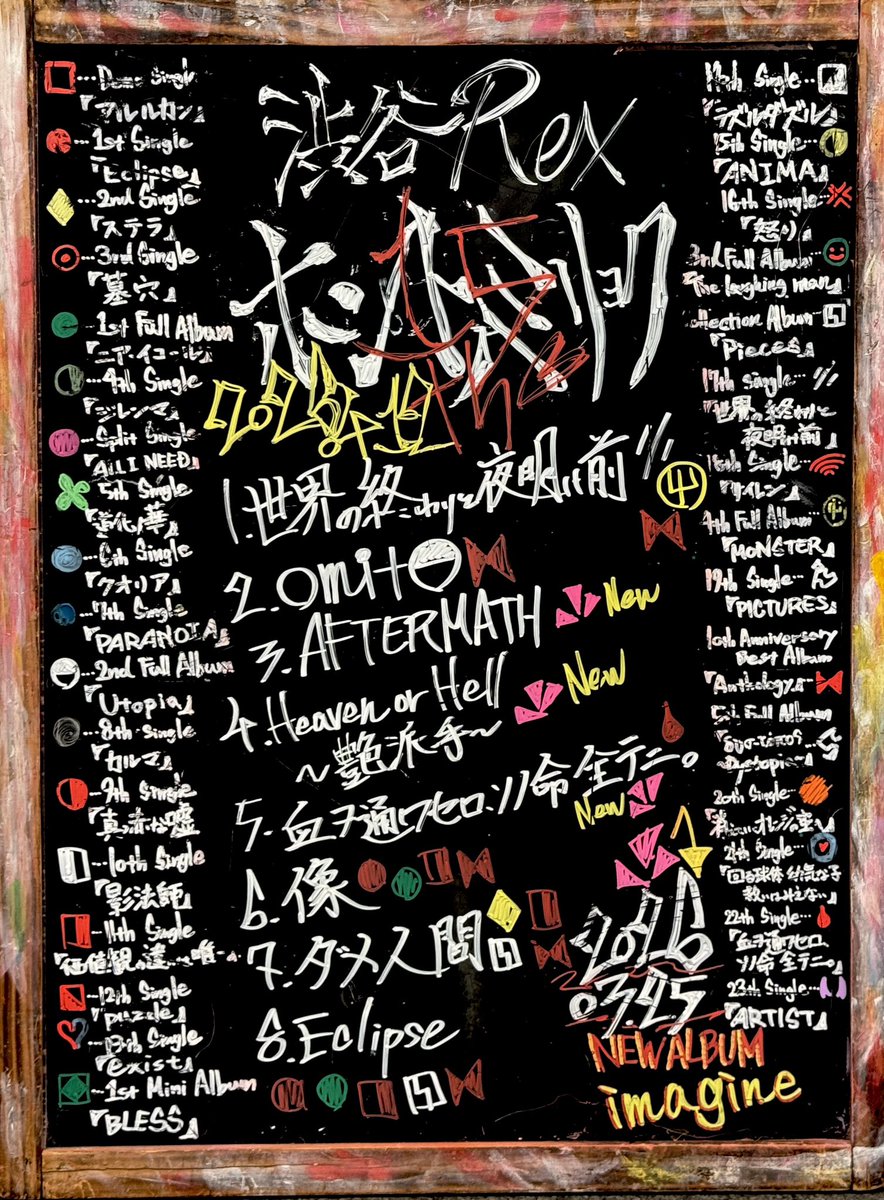 …Demo Single
『アルルカン』
…1st Single
『Eclipse』
…2nd Single
『ステラ』
…3rd Single
『墓穴』
…1st Full Album
『ニア・イコール』
…4th Single
『ジレンマ』
…Split Single
『ALL I NEED』
…5th Single
『道化ノ華』
…6th Single
『クオリア』
…7th Single
『PARANOIA』
…2nd Full Album
『Utopia』
…8th Single
『カルマ』
…9th Single
『真っ赤な嘘』
…10th Single
『影法師』
…11th Single
『価値観の違いは唯一の
…12th Single
『puzzle』
…13th Single
『exist』
…1st Mini Album
『BLESS』
渋谷Rex
15
th
2023年型
1.世界の終わりと夜明け前
2.Omit
3.AFTERMATH New
4.Heaven or Hell New
～艶派手～
5.血ヲ通ワセロ、ソノ命全テニ。
New
6.像
7.ダメ人間
8.Eclipse
2026
03.25
NEW ALBUM
imagine
14th Single…
『ラズルダズル』
15th Single…
『ANIMA』
16th Single…
『怒り』
3rd Full Album
The laughing man』
Collection Album…
『Pieces』
17th Single…
『世界の終わりと
夜明け前』
18th Single…
『サイレン』
4th Full Album…
『MONSTER』
19th Single…
『PICTURES』
10th Anniversary
Best Album
『Anthology』
5th Full Album
20th Single…
21th Single…
『回る球体 幼気な子
救いはみえない』
22th Single…
『血ヲ通ワセロ
ソノ命全テニ。』
23th Single…
『ARTIST』